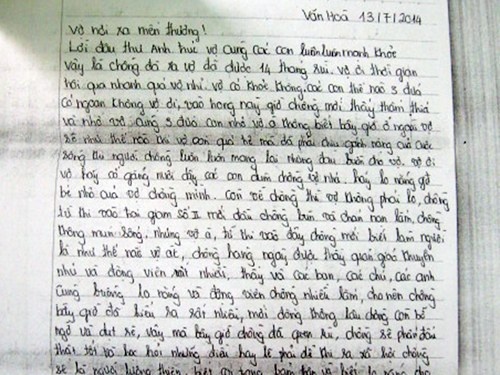 Văn Hoá 13/7/2014
Vợ nơi xa mến thương!
Lời đầu thư Anh chúc vợ cùng các con luôn luôn mạnh khỏe
vậy là chồng đã xa vợ đã được 14 tháng rồi. vợ ơi thời gian
trôi qua nhanh quá vợ nhỉ. vợ có khỏe không, các con thế nào 3 đứa
có ngoan không vợ ơi, vào hoàng nay giờ chồng mới thấy thấm thía
và nhớ vợ cùng 3 đứa con nhỏ vợ à không biết bây giờ ở ngoài vợ
sẽ như thế nào thì vợ còn quá trẻ mà đã phải chịu gánh nặng của cuộc
sống thì người chồng luôn luôn mang lại những đau buồn cho vợ. vợ ơi
vợ hãy cố gắng nuôi dậy các con dùm chồng vợ nhé. hãy lo nắng giờ
bé nhỏ của vợ chồng mình. Còn về chồng thì vợ không phải lo, chồng
từ khi vào trại giam số II mới đầu chồng buồn và chán nản lắm, chồng
không muốn sống, nhưng vợ à, từ khi vào đây chồng mới biết làm người
là như thế nào vợ ạ, chồng hàng ngày được thầy quản giáo khuyên
nhủ và động viên rất nhiều, thầy và các bạn, các chú, các anh
cùng buồng lo lắng và động viên chồng nhiều lắm, cho nên chồng
bây giờ đã hiểu ra rất nhiều, mới dòng không lâu chồng còn bỡ
ngỡ và dụt rè, vậy mà bây giờ chồng đã quen rồi, chồng sẽ phấn đấu
thật tốt và học hỏi những điều hay lẽ phải để khi ra xã hội chồng
sẽ là người lương thiện, biết